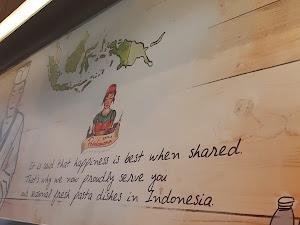 It is said that happiness is best when shared.
That's why we now proudly serve you
our seasonal fresh pasta dishes in Indonesia.